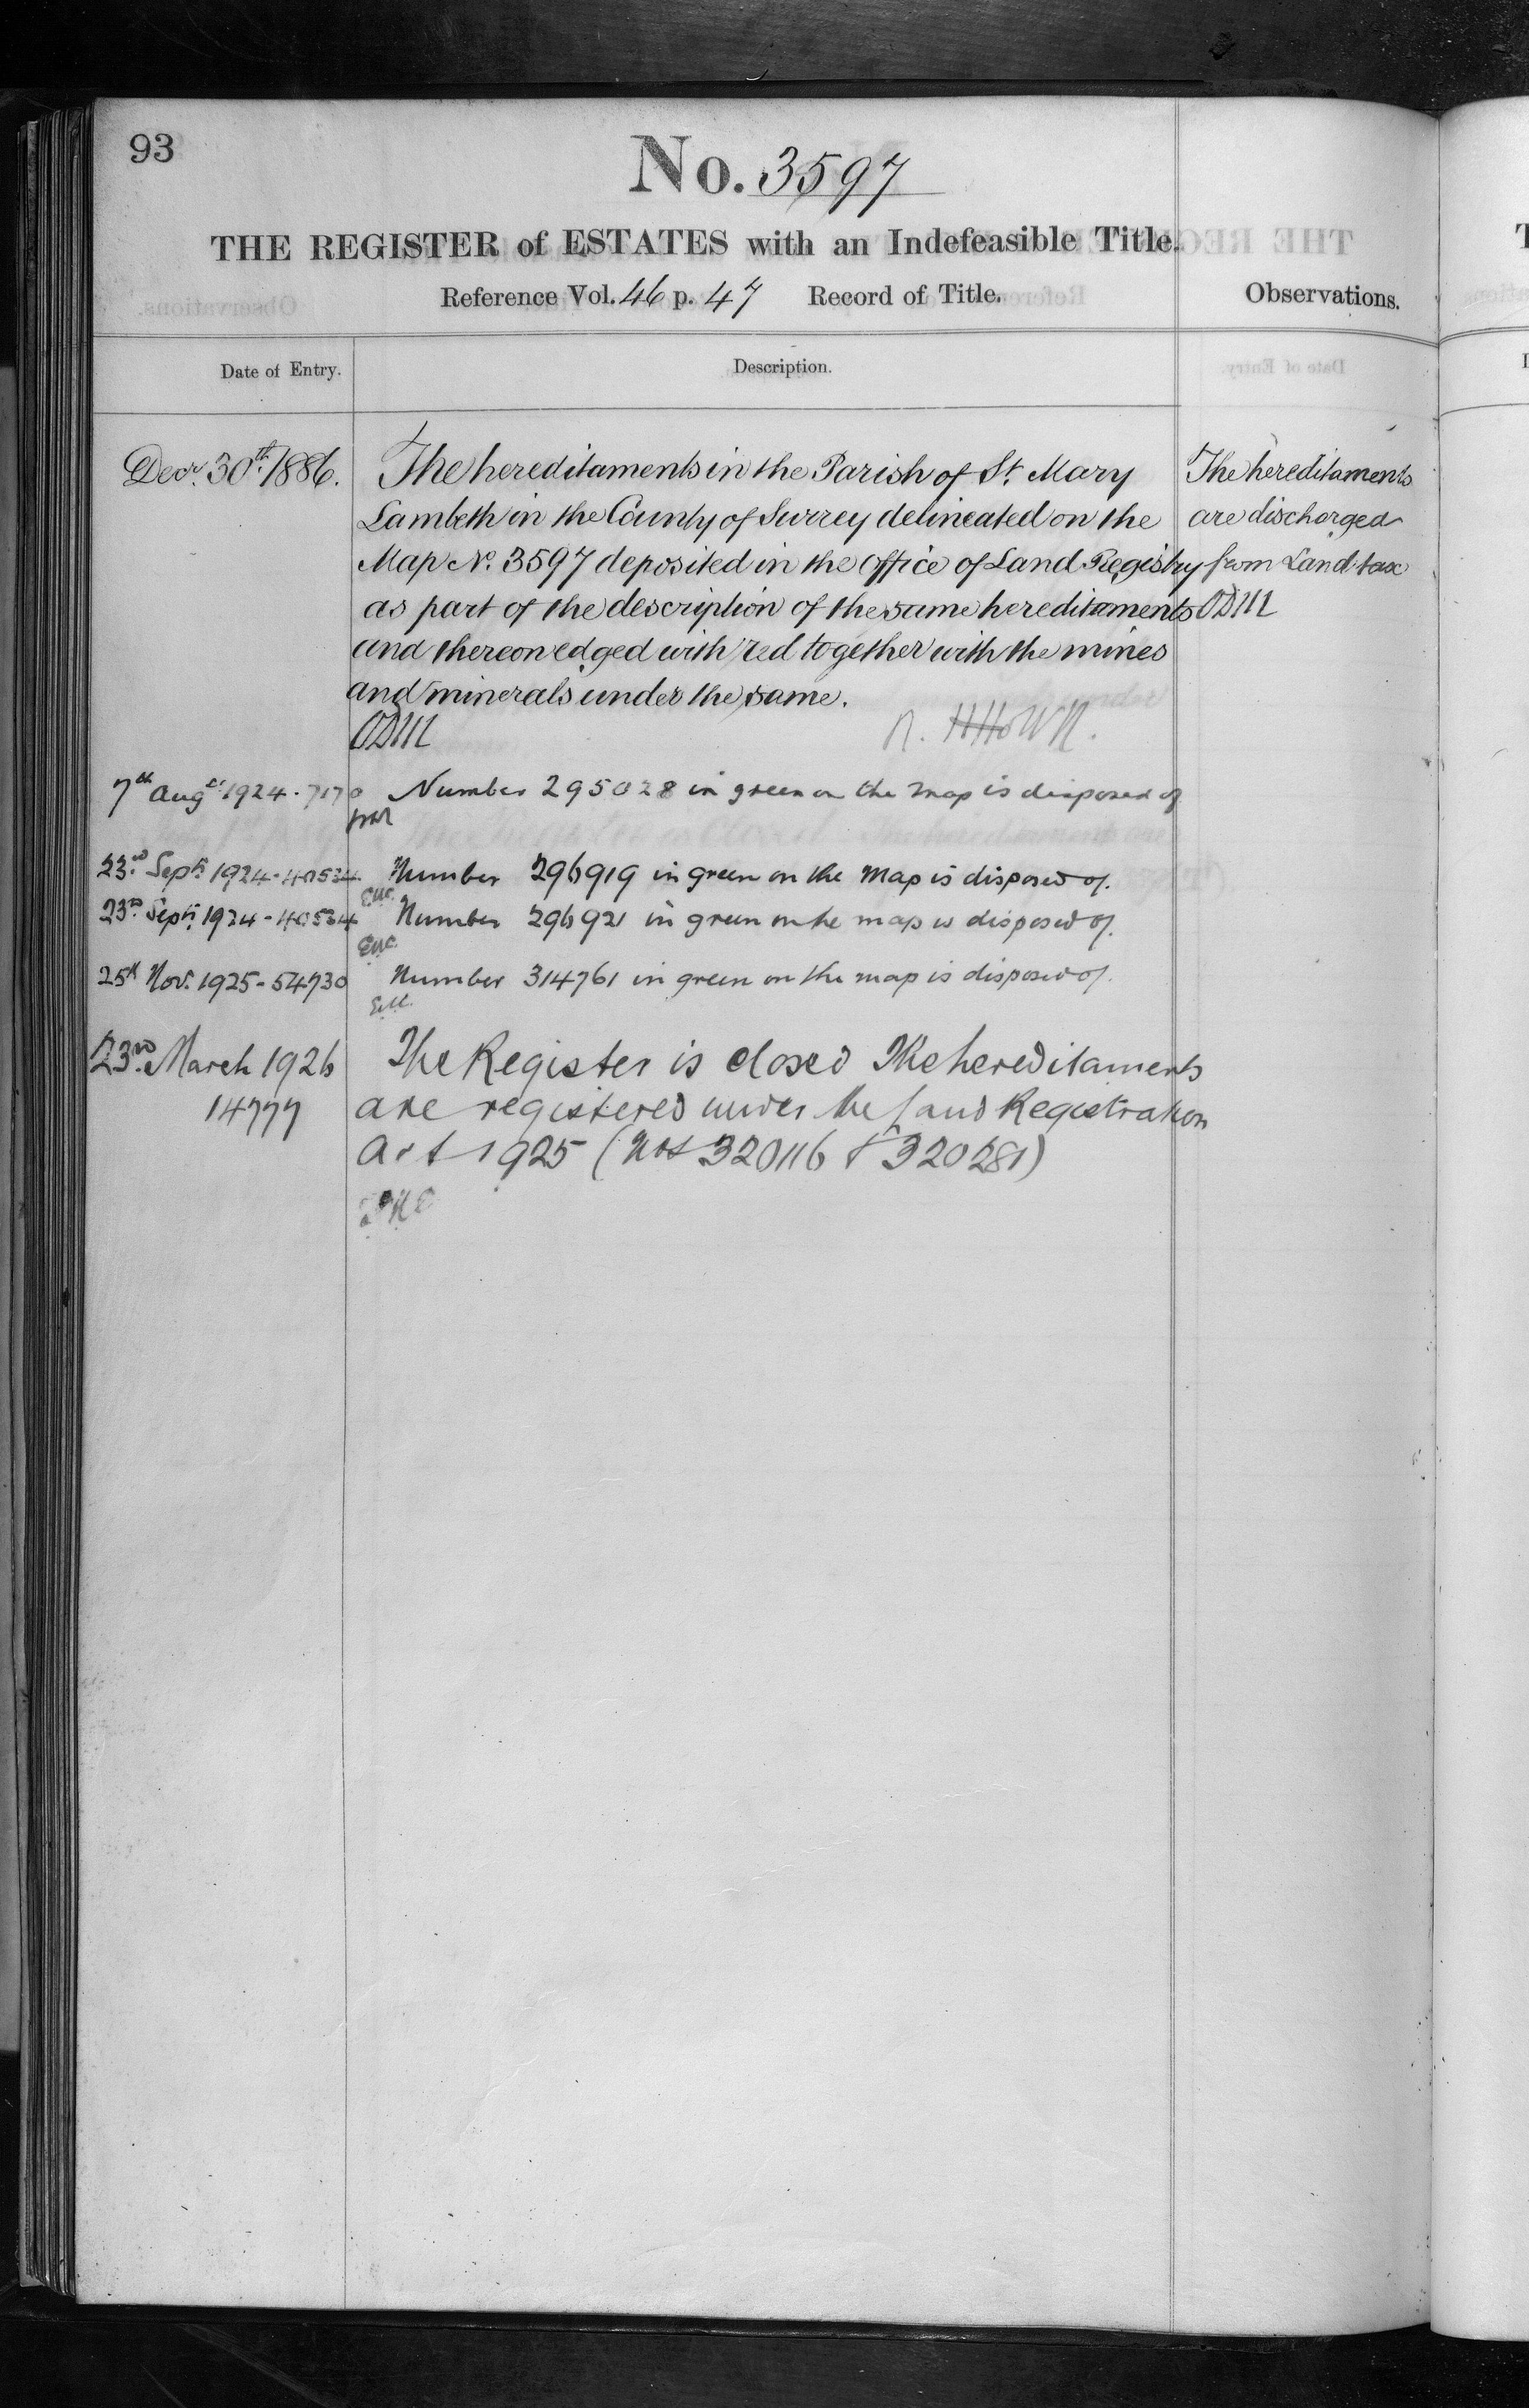 93
No. 3597
THE REGISTER of ESTATES with an Indefeasible Title.
Reference Vol. 46 p. 47 Record of Title.
Observations.
Date of Entry.
Description.
Decr. 30th. 1886.
The hereditaments in the Parish of St. Mary
Lambeth in the County of Surrey delineated on the
Map No. 3597 deposited in the Office of Land Registry
as part of the description of the same hereditaments
and thereon edged with red together with the mines
and minerals under the same.
The hereditaments
are discharged
from Land tax
7th Augst 1924 · 7170
Number 295028 in green on the map is disposed of
23rd Sept. 1924 - 40534
Number 296919 in green on the Map is disposed of.
23rd Sept. 1924 - 40534
Number 296921 in green on the map is disposed of.
25th Nov. 1925 - 54730
Number 314761 in green on the map is disposed of.
23rd March 1926
14777
The Register is closed The hereditaments
are registered under the Land Registration
Act 1925 (Nos 320116 & 320281)